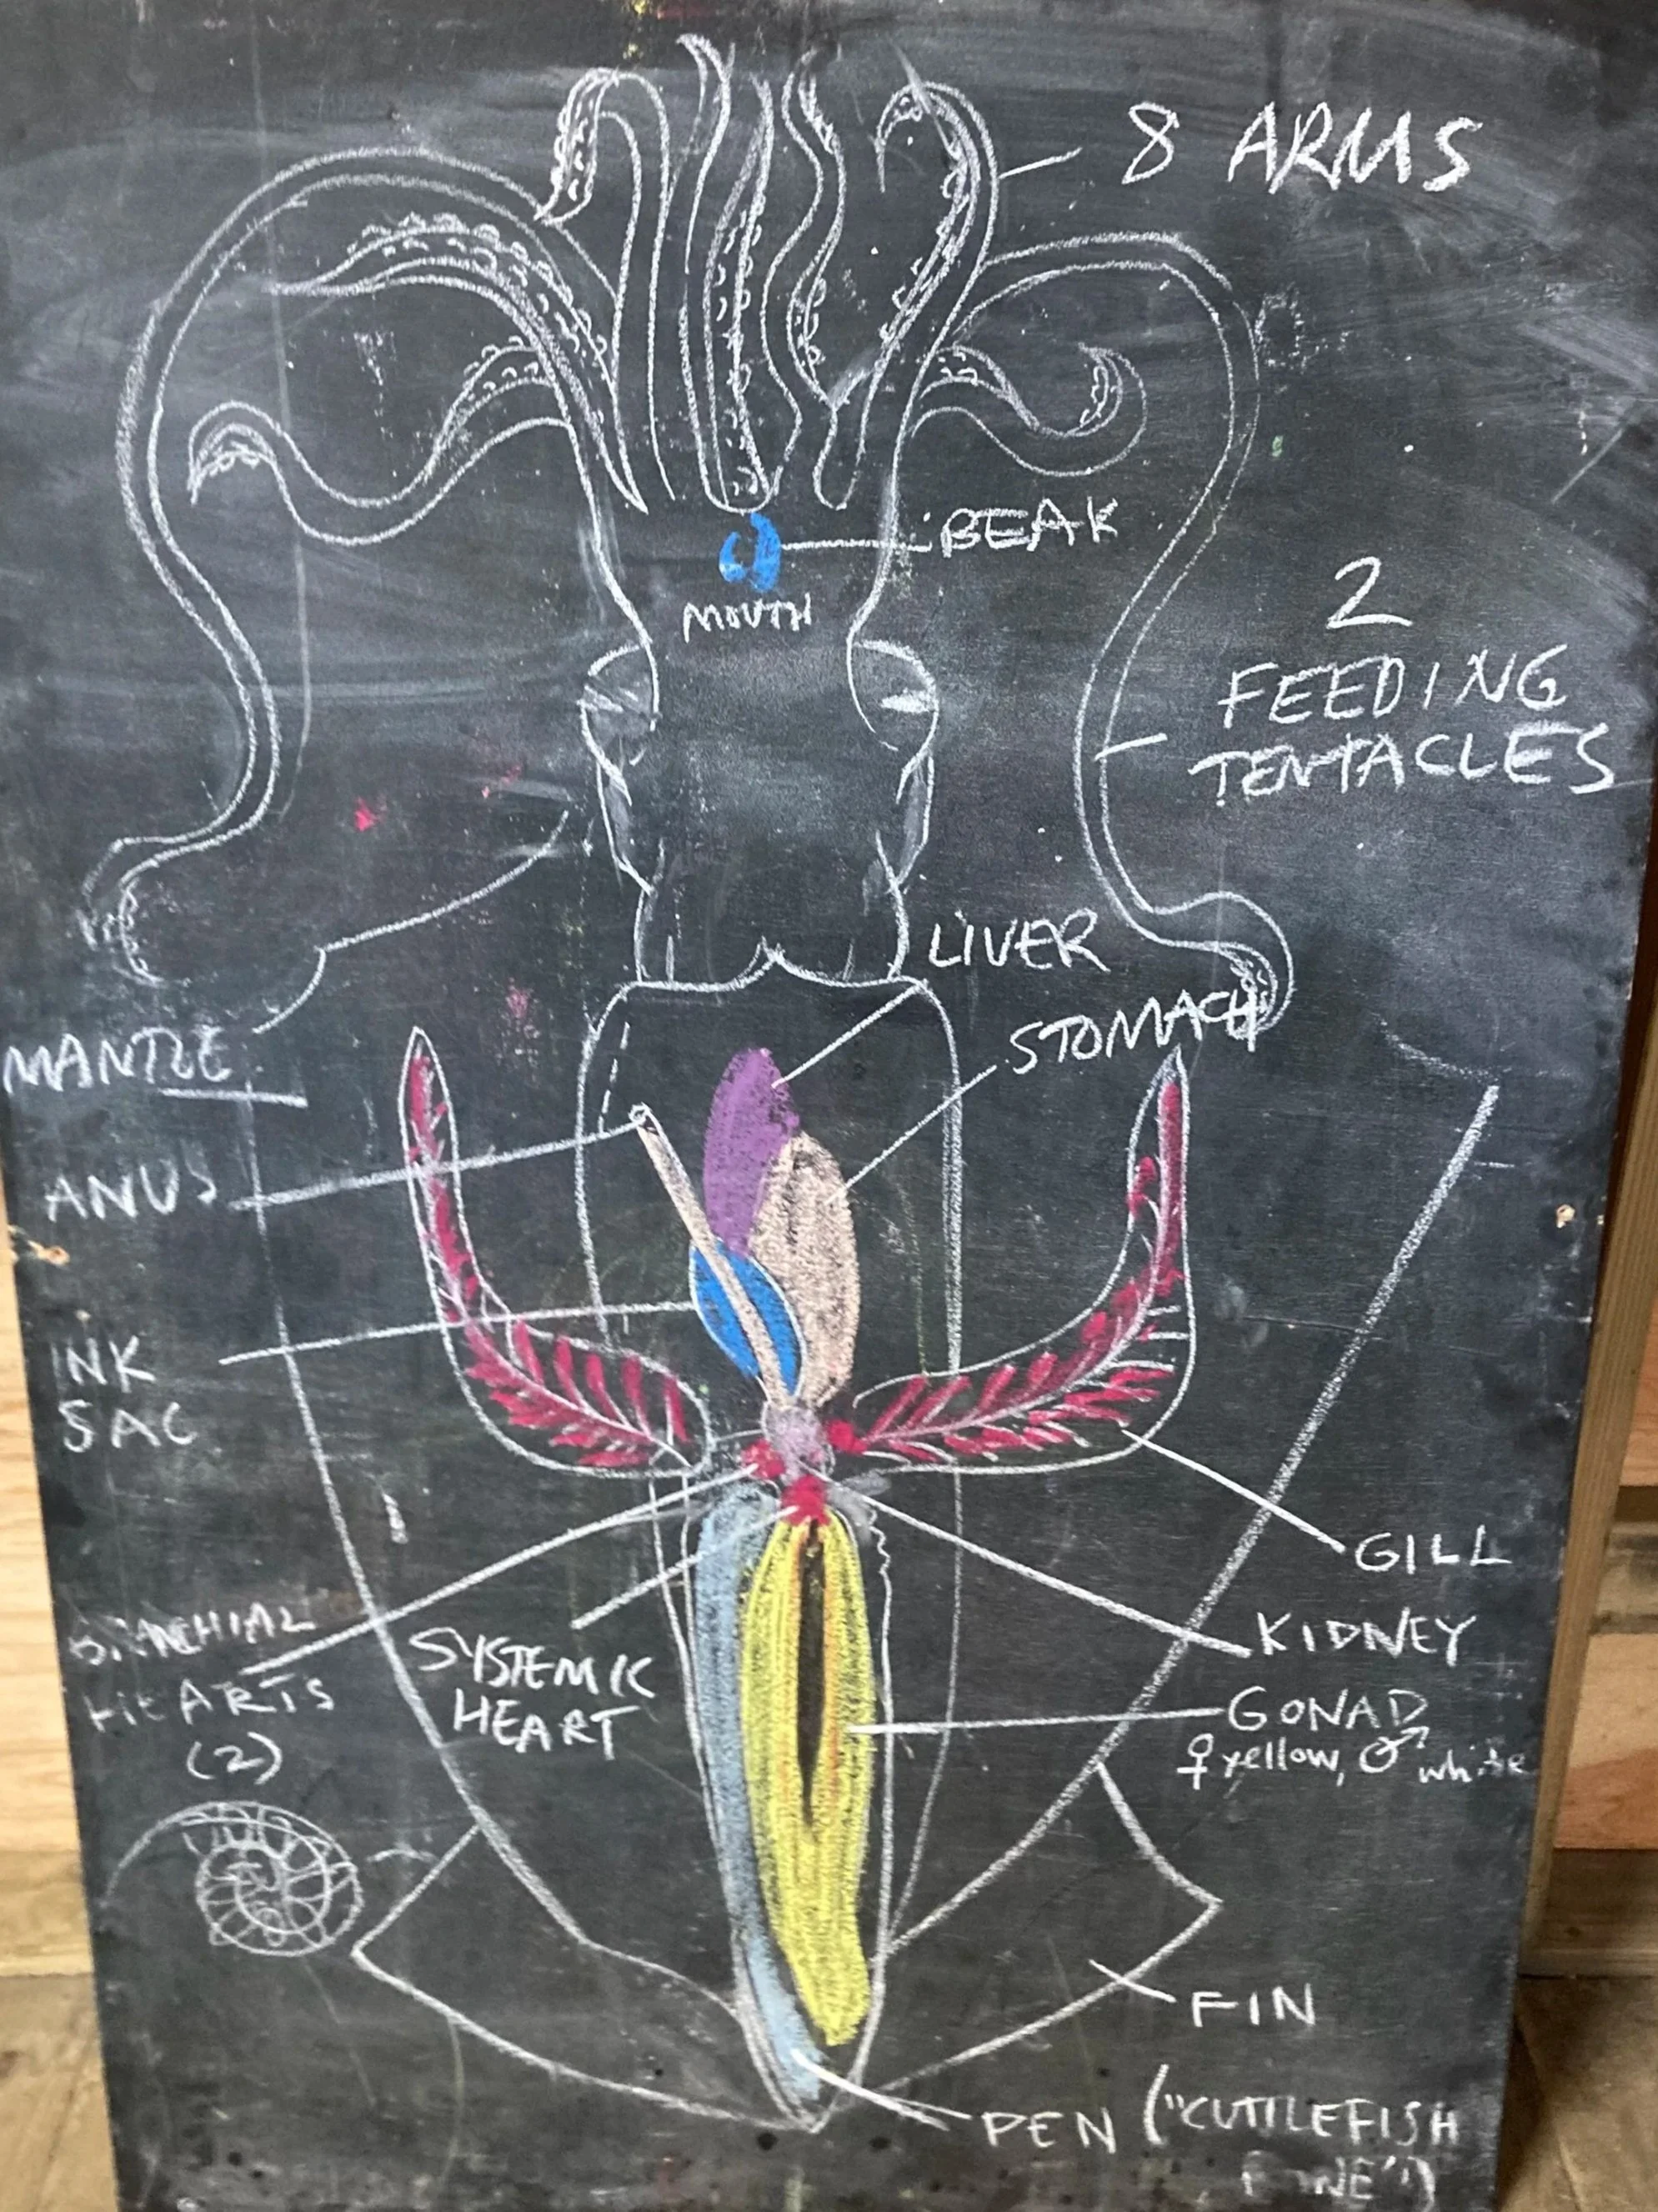 8 ARMS
BEAK
MOUTH
2
FEEDING
TENTACLES
LIVER
STOMACH
MANTLE
ANUS
INK
SAC
GILL
BRANCHIAL
HEARTS
(2)
SYSTEMIC
HEART
KIDNEY
GONAD
♀ yellow, ♂ white
FIN
PEN ("CUTTLEFISH
BONE")